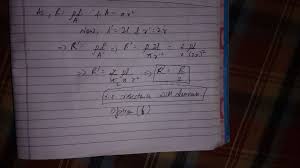 As, R = ρl/A & A = πr²
Now, l' = 2l & r' = 2r
⇒ R' = ρl'/A' = ρ2l/πr'² = 2ρl/π(2r)²
⇒ R' = 2ρl/π4r² ⇒ R' = R/2
i.e. resistance will decrease
Option (b)